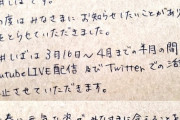 の度はみなさまにお知らせしたいことがあり
をとらせていただきました。
井しばは3月16日〜4月までの半月の間
YoutubeLIVE配信及びTwitterでの活
止させていただきます。